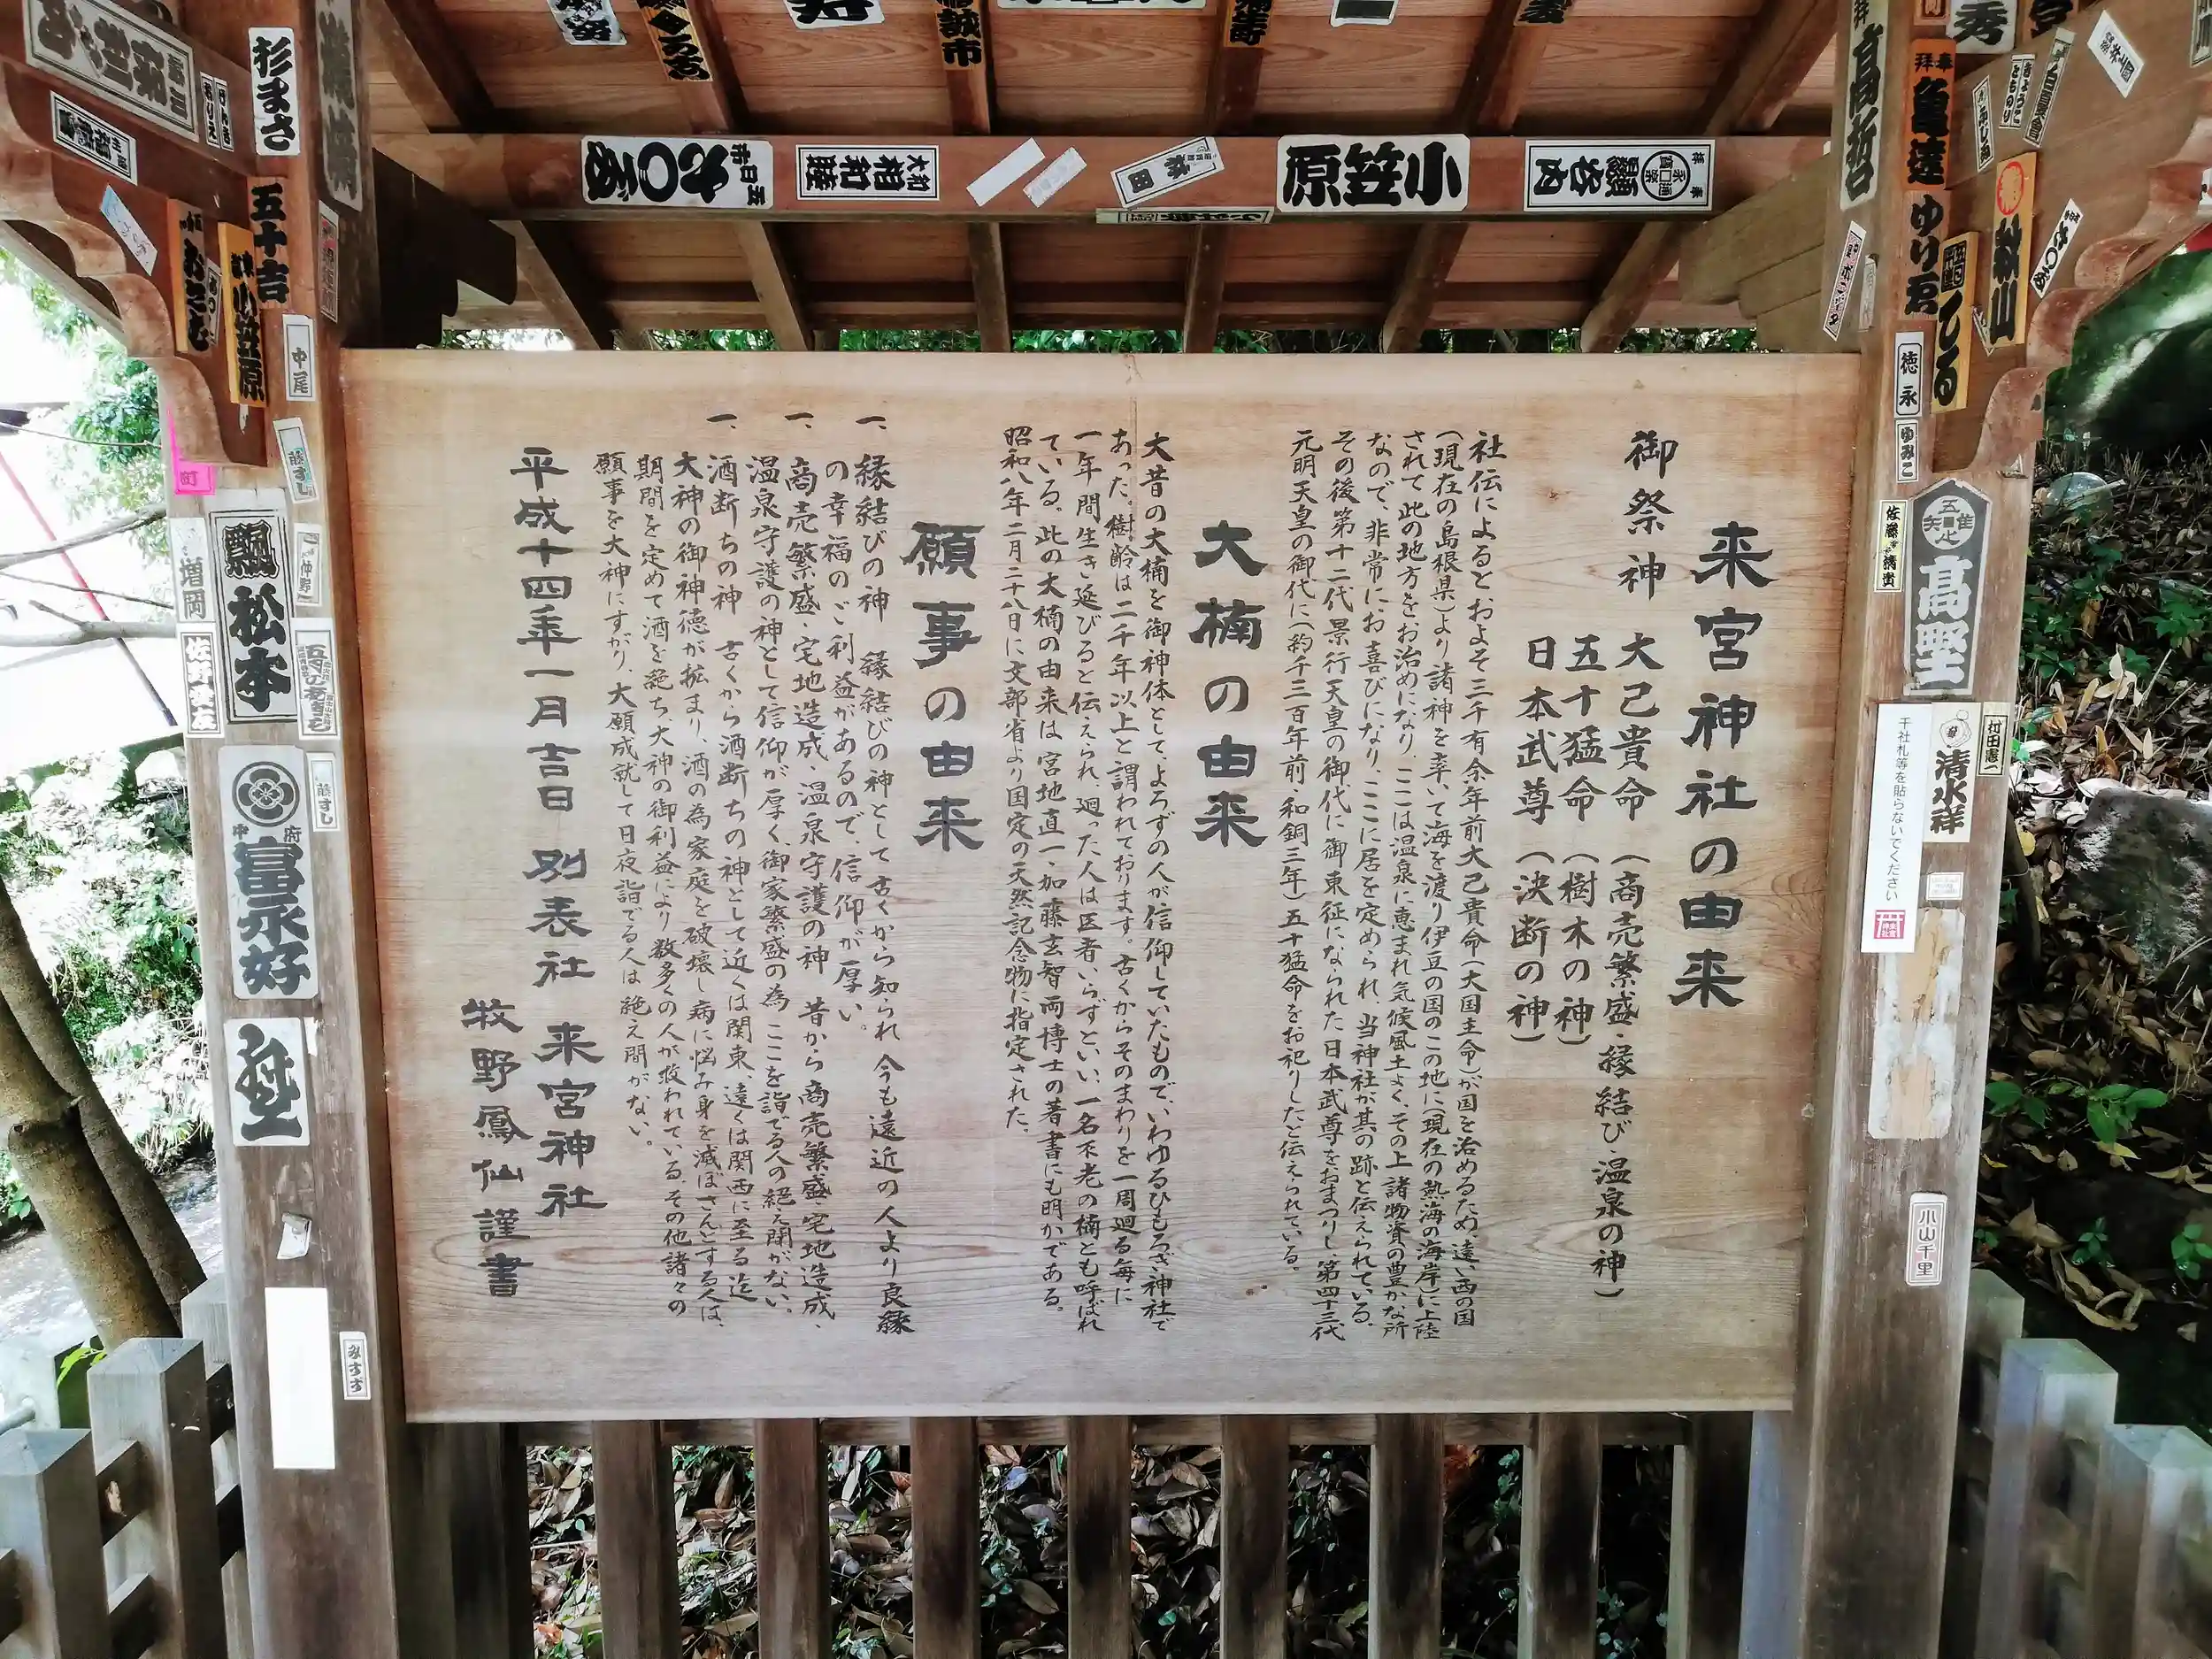 来宮神社の由来
御祭神 大己貴命（商売繁盛・縁結び・温泉の神）
五十猛命（樹木の神）
日本武尊（決断の神）
社伝によると、およそ三千有余年前大己貴命（大国主命）が国を治めるため、遠い西の国
（現在の島根県）より諸神を率いて海を渡り伊豆の国のこの地に（現在の熱海の海岸）に上陸
されて此の地方をお治めになり、ここは温泉に恵まれ気候風土よく、その上諸物資の豊かな所
なので、非常にお喜びになり、ここに居を定められ、当神社が其の跡と伝えられている。
その後第十二代景行天皇の御代に御東征になられた日本武尊をおまつりし、第四十三代
元明天皇の御代に（約千三百年前・和銅三年）五十猛命をお祀りしたと伝えられている。
大楠の由来
大昔の大楠を御神体として、よろずの人が信仰していたもので、いわゆるひもろぎ神社で
あった。樹齢は二千年以上と謂われております。古くからそのまわりを一周廻る毎に
一年間生き延びると伝えられ、廻った人は医者いらずといい、一名不老の楠とも呼ばれ
ている。此の大楠の由来は宮地直一・加藤玄智両博士の著書にも明かである。
昭和八年二月二十八日に文部省より国定の天然記念物に指定された。
願事の由来
一、縁結びの神 縁結びの神として古くから知られ 今も遠近の人より良縁
の幸福のご利益があるので、信仰が厚い。
一、商売繁盛・宅地造成・温泉守護の神 昔から商売繁盛・宅地造成、
温泉守護の神として信仰が厚く、御家繁盛の為 ここを詣でる人の絶え間がない。
一、酒断ちの神 古くから酒断ちの神として近くは関東 遠くは関西に至る迄
大神の御神徳が拡まり、酒の為家庭を破壊し病に悩み身を滅ぼさんとする人は、
期間を定めて酒を絶ち、大神の御利益により数多くの人が救われている。その他諸々の
願事を大神にすがり、大願成就して日夜詣でる人は絶え間がない。
平成十四年一月吉日 別表社 来宮神社
牧野鳳仙謹書
千社札等を貼らないでください
来宮神社
小笠原
大和
相和睦
林田
杉まさ
五十吉
小笠原
中尾
松本
増岡
中府
冨永好
みすず
高哲
奉拝
亀達
秋山
徳永
ゆみこ
高野
清水祥
村田憲一
小山千里